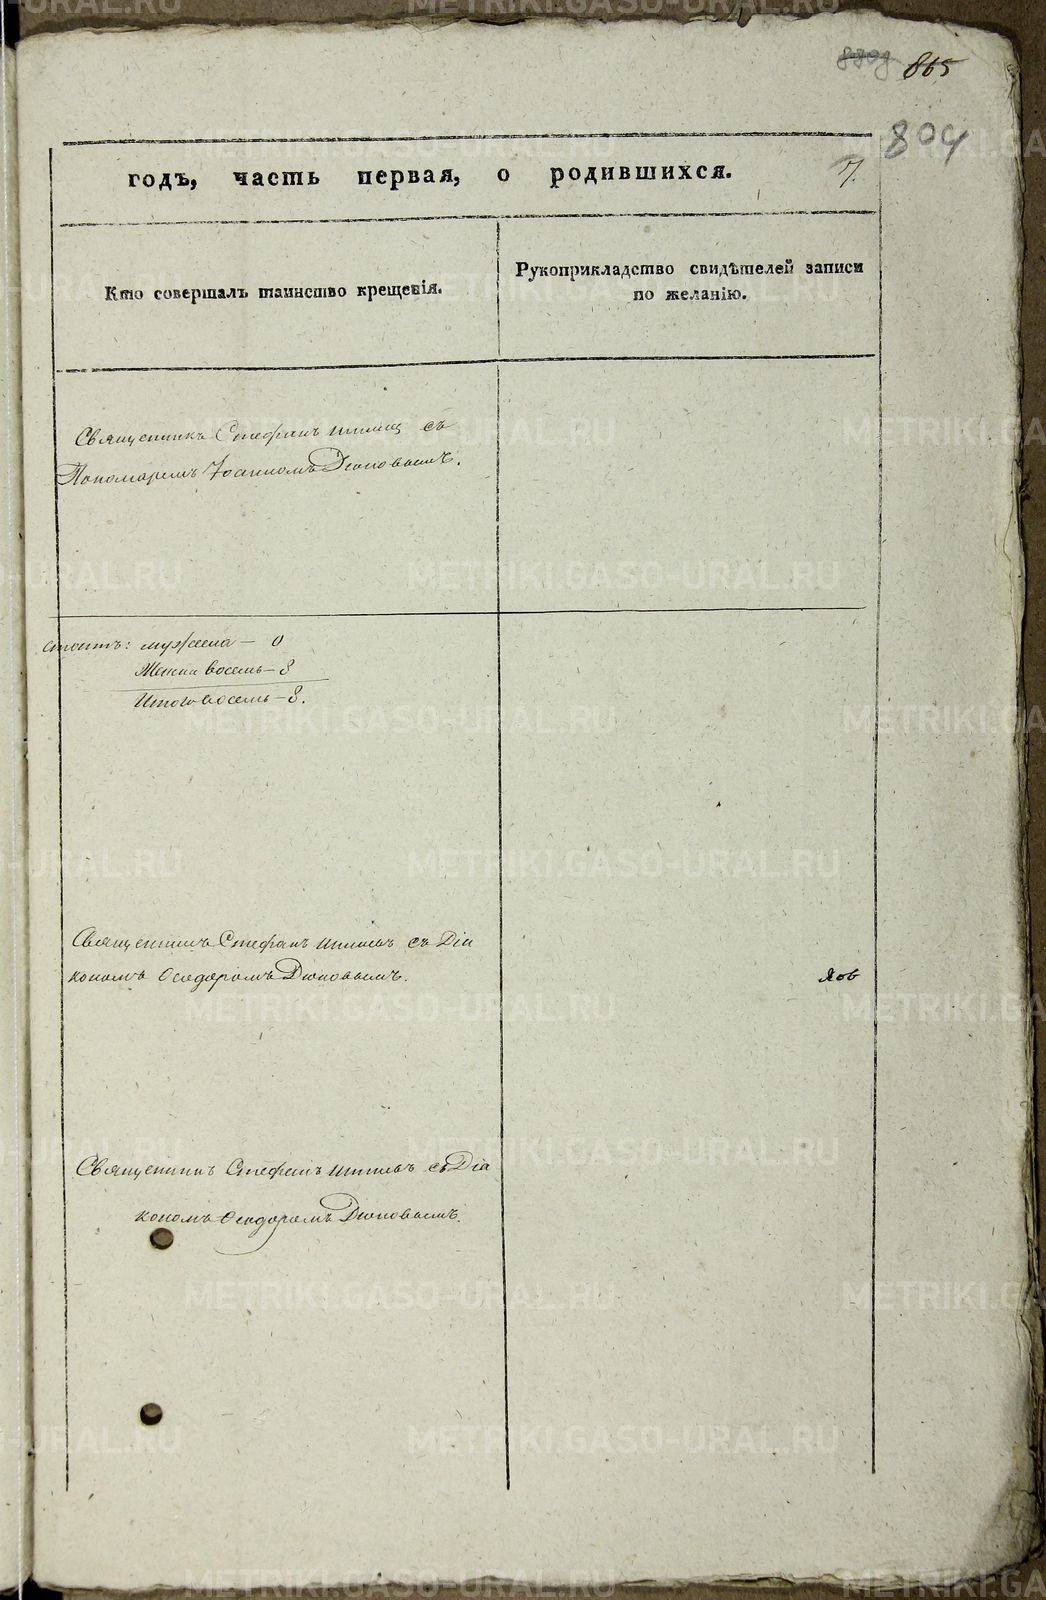 865
804
годъ, часть первая, о родившихся. 7.
Кто совершалъ таинство крещенія.
Рукоприкладство свидѣтелей записи
по желанію.
Священникъ Стефанъ съ
Пономаремъ Іоанномъ Дюповымъ.
мужеска - 0
Женска восемь - 8
Итого восемь - 8.
Священникъ Стефанъ съ Діа
кономъ Ѳеодоромъ Дюповымъ.
Яов
Священникъ Стефанъ съ Діа
кономъ Ѳеодоромъ Дюповымъ.
METRIKI.GASO-URAL.RU